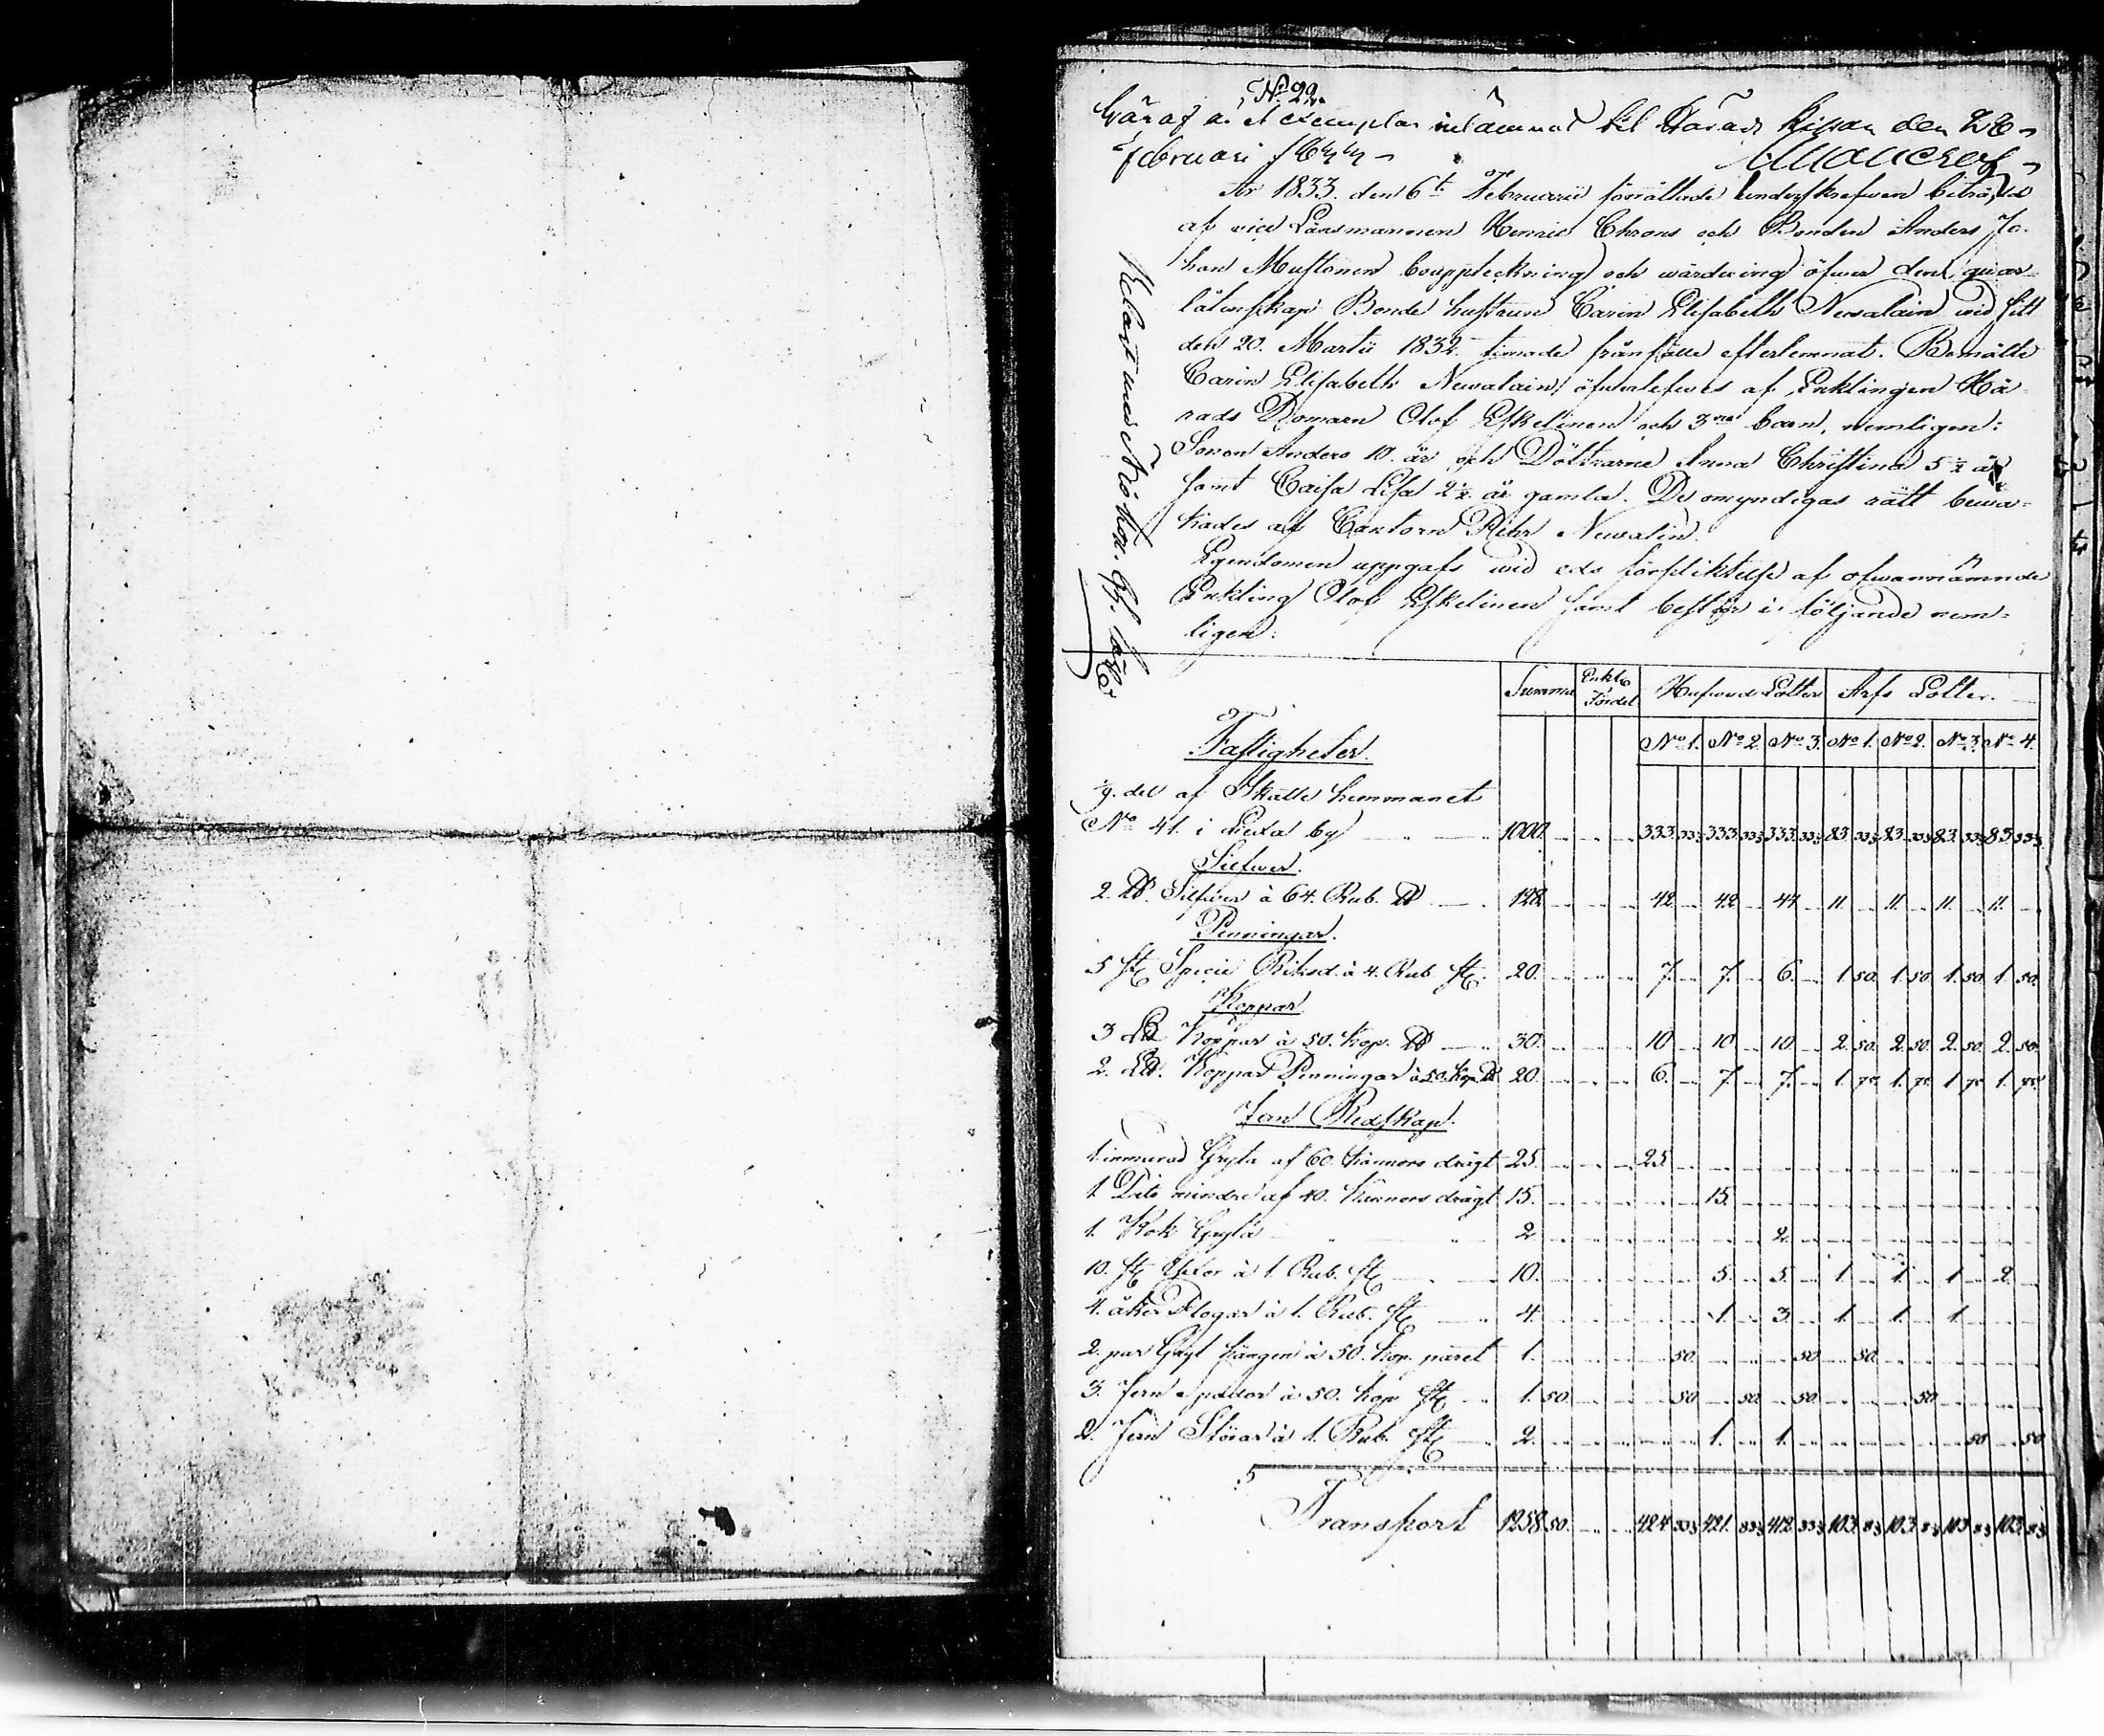 No 99.
Häraf är et exemplar inlämnat til Härads Kistan den 26
Februari 1844
År 1833. den 6te Februarii förrättade underskrefven biträdd
af vice Länsmannen Henric Chrons och Bonden Anders Jo-
han Mustonen bouppteckning och wärdering öfwer den qwar-
låtenskap Bonde hustrun Carin Elisabeth Newalain wid sitt
den 20. Martii 1832. timade frånfälle efterlemnat. Bemälte
Carin Elisabeth Newalain öfwerlefwes af Enklingen Hä-
rads Domaren Olof Eskelinen och 3ne barn, nemligen:
Sonen Anders 10. år och Döttrarne Anna Christina 5 1/2 år
samt Caisa Lisa 2 1/2 år gamla. De omyndigas rätt bewa-
kades af Cantorn Pehr Newalin.
Egendomen uppgafs wid eds förpliktelse af ofwannämnde
Enkling Olof Eskelinen samt består i följande nem-
ligen:
Summa Enkl. Fördel Hufwud Lotter Arfs Lotter.
No 1. No 2 No 3. No 1. No 2. No 3. No 4.
Fastigheter.
del af Skatte hemmanet
No 41. i by 1000. 333. 33 1/3 333. 33 1/3 333. 33 1/3 83. 33 1/3 83. 33 1/3 83. 33 1/3 83. 33 1/3
Silfwer.
2. ℔. Silfwer à 64. Rub. ℔ 128 42 42 44 11. 11. 11. 11.
Penningar.
5 st. Specie Riksd. à 4. Rub. st. 20. 7. 7. 6. 1. 50. 1. 50. 1. 50. 1. 50.
Koppar.
3 L℔ Koppar à 50. kop. ℔ 30. 10 10 10. 2. 50. 2. 50. 2. 50. 2. 50.
2. L℔. Koppar Penningar à 50. kop. ℔ 20. 6. 7. 7. 1. 75. 1. 75. 1. 75. 1. 75.
Jern Redskap.
1. inmurad Gryta af 60. kannors drägt 25. 25.
1 Dito mindre af 40. kannors drägt 15. 15.
1. Kok Gryta 2. 2.
10. st. Yxor à 1. Rub. st. 10. 5. 5. 1. 1. 1. 2.
4. åker Plogar à 1. Rub. st. 4. 1. 3. 1. 1. 1.
2. par Gryt hängen à 50. kop. paret 1. 50. 50. 50.
3. Jern Spador à 50. kop. st. 1. 50. 50. 50. 50. 50.
2. Jern Störar à 1. Rub. st. 2. 1. 1. 50 50
Transport 1258. 50. 424. 33 1/3 421. 33 1/3 412. 33 1/3 103. 103. 103. 103.